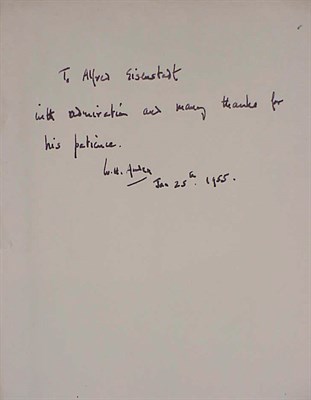 To Alfred Eisenstedt
with admiration and many thanks for
his patience.
W.H. Auden
Jan 25th. 1955.